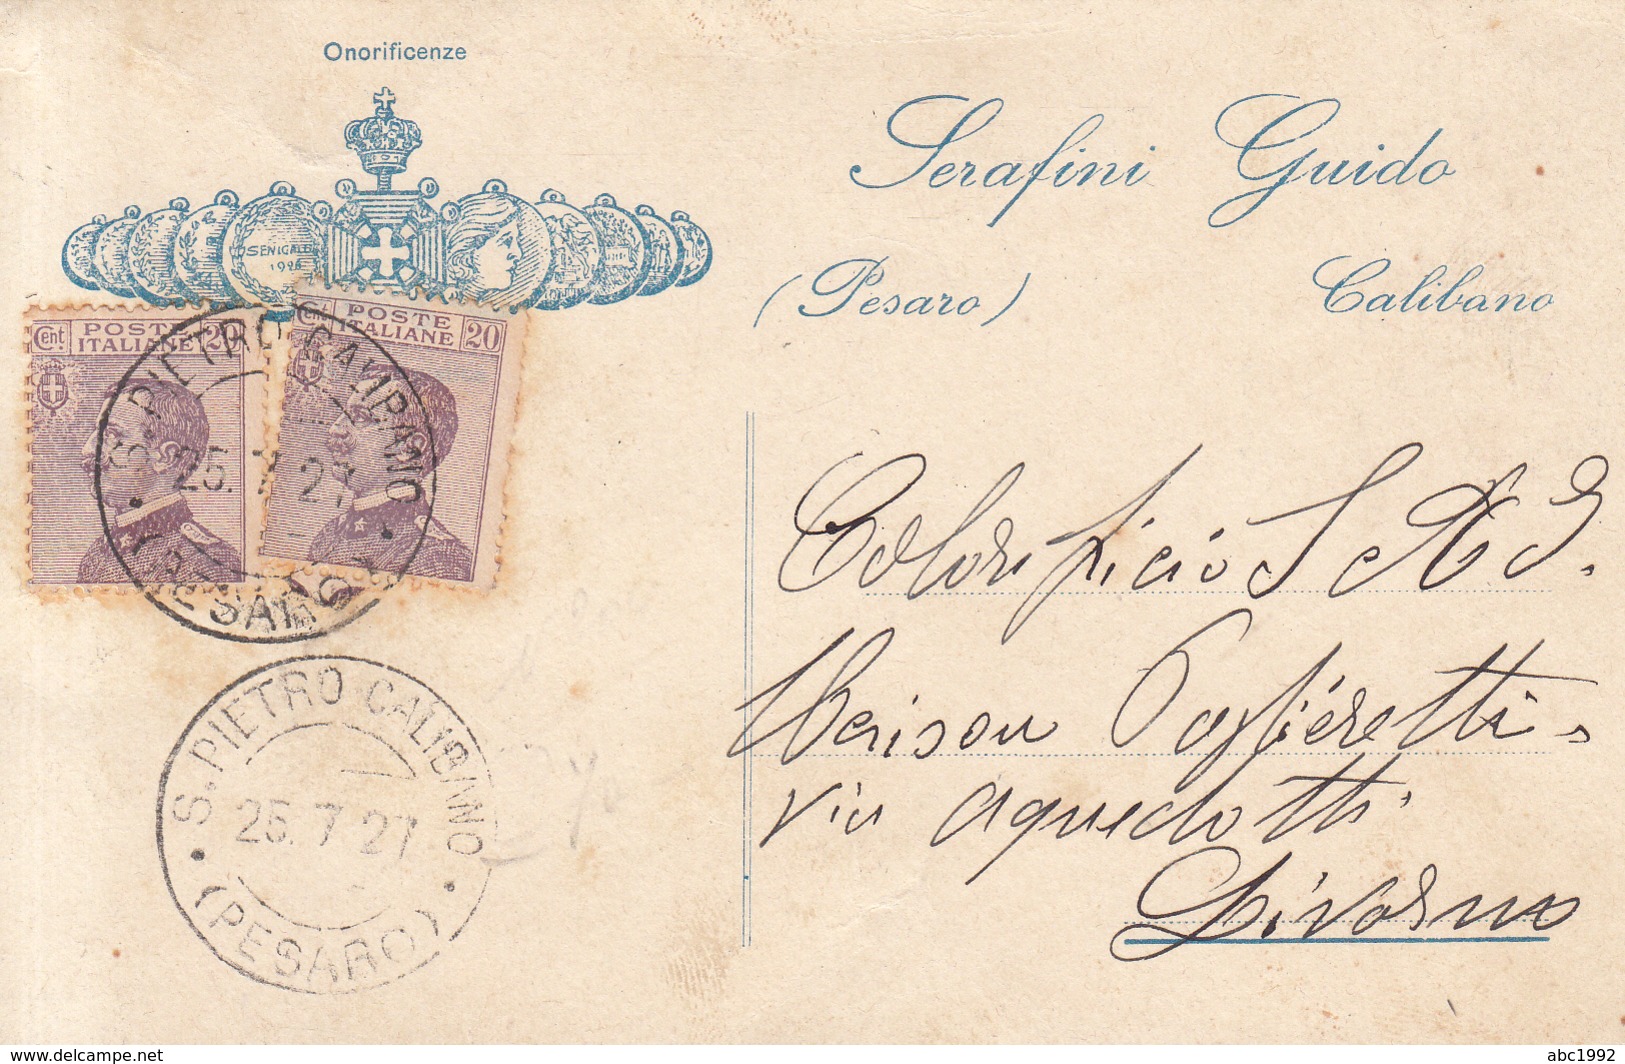 Onorificenze
SENIGALLIA
1926
Serafini Guido
(Pesaro) Calibano
Cent. POSTE ITALIANE 20
Cent. POSTE ITALIANE 20
S. PIETRO CALIBANO
25. 7 27
(PESARO)
S. PIETRO CALIBANO
25. 7 27
(PESARO)
Colorificio
Paglieretti
via Aquedotti
Livorno
www.delcampe.net
abc1992